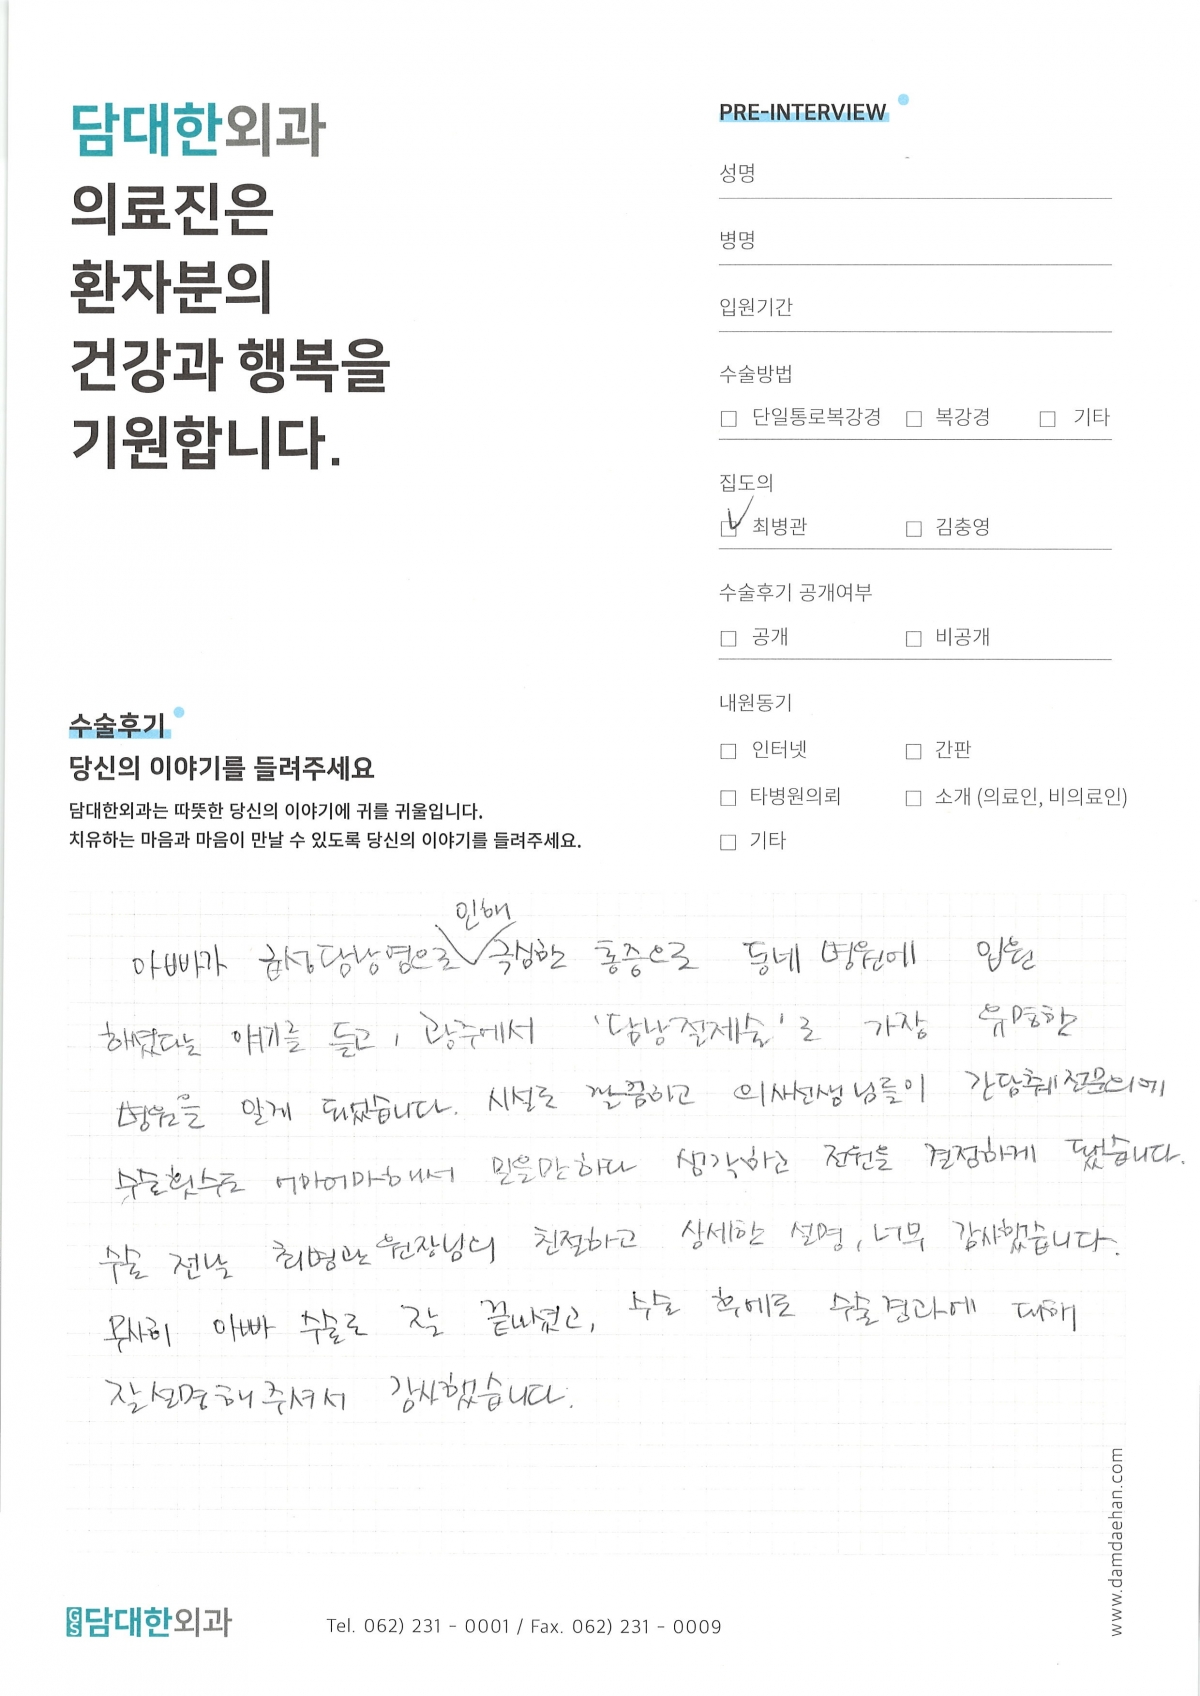 담대한외과
의료진은
환자분의
건강과 행복을
기원합니다.
PRE-INTERVIEW
성명
병명
입원기간
수술방법
□ 단일통로복강경 □ 복강경 □ 기타
집도의
☑ 최병관 □ 김충영
수술후기 공개여부
□ 공개 □ 비공개
내원동기
□ 인터넷 □ 간판
□ 타병원의뢰 □ 소개 (의료인, 비의료인)
□ 기타
수술후기
당신의 이야기를 들려주세요
담대한외과는 따뜻한 당신의 이야기에 귀를 귀울입니다.
치유하는 마음과 마음이 만날 수 있도록 당신의 이야기를 들려주세요.
인해
아빠가 급성담낭염으로 극심한 통증으로 동네 병원에 입원
하셨다는 얘기를 듣고, 광주에서 '담낭절제술'로 가장 유명한
병원을 알게 되었습니다. 시설도 깔끔하고 의사선생님들이 간담췌전문의에
수술횟수도 어마어마해서 믿을만하다 생각하고 전원을 결정하게 됐습니다.
수술 전날 최병관 원장님의 친절하고 상세한 설명, 너무 감사했습니다.
무사히 아빠 수술도 잘 끝나셨고, 수술 후에도 수술경과에 대해
잘 설명해 주셔서 감사했습니다.
GS 담대한외과
Tel. 062) 231 - 0001 / Fax. 062) 231 - 0009
www.damdaehan.com